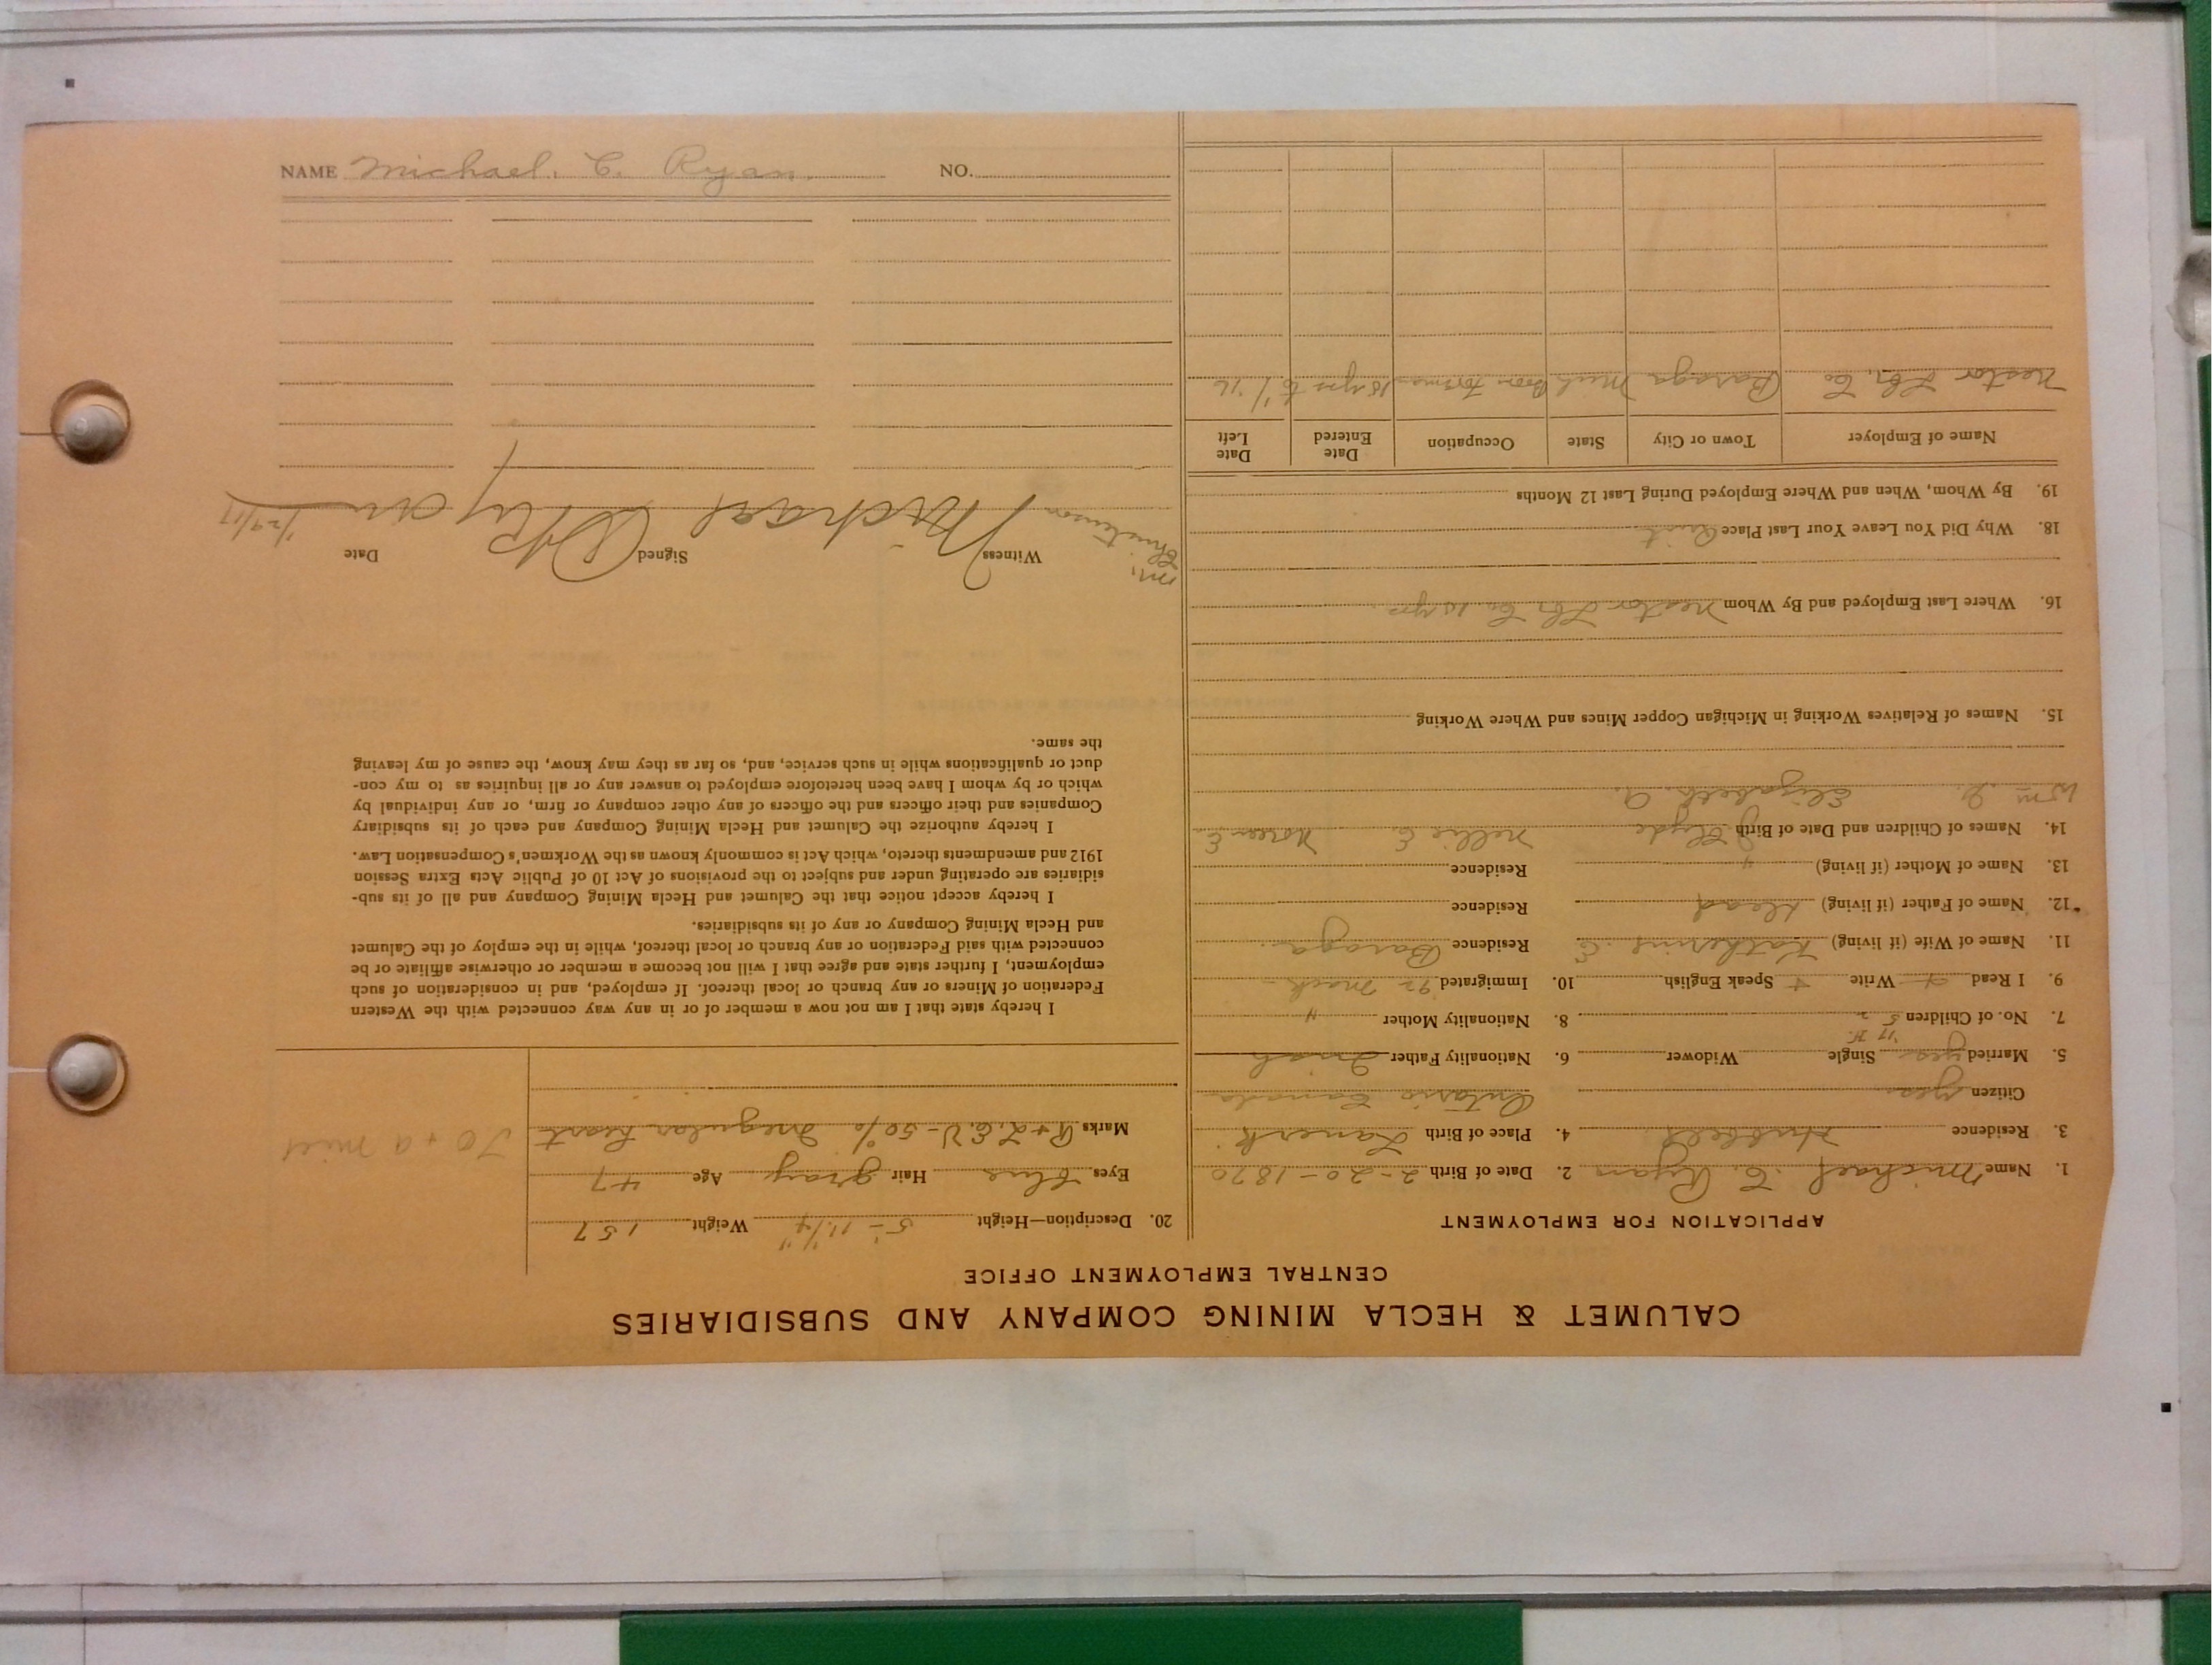 CALUMET & HECLA MINING COMPANY AND SUBSIDIARIES
CENTRAL EMPLOYMENT OFFICE
APPLICATION FOR EMPLOYMENT
1. Name Michael C. Ryan 2. Date of Birth 2-20-1870
3. Residence Hubbell 4. Place of Birth Lanark
Citizen yes Ontario Canada
5. Married yes Single Widower 6. Nationality Father Irish
7. No. of Children 5 8. Nationality Mother "
9. I Read + Write + Speak English 10. Immigrated 92 Mack
11. Name of Wife (if living) Katherine E Residence Baraga
12. Name of Father (if living) dead Residence
13. Name of Mother (if living) " Residence
14. Names of Children and Date of Birth J Clyde Nellie C Noreen E
Wm J. Elizabeth A.
15. Names of Relatives Working in Michigan Copper Mines and Where Working
16. Where Last Employed and By Whom Nestor Lbr. Co. 15 yrs.
18. Why Did You Leave Your Last Place Quit
19. By Whom, When and Where Employed During Last 12 Months
Name of Employer Town or City State Occupation Date Entered Date Left
Nestor Lbr. Co Baraga Mich Boom Foreman 15 yrs to 1/16
20. Description—Height 5'-11 1/4" Weight 157
Eyes blue Hair gray Age 47
Marks R + L.E.V - 50% Irregular heart
I hereby state that I am not now a member of or in any way connected with the Western
Federation of Miners or any branch or local thereof. If employed, and in consideration of such
employment, I further state and agree that I will not become a member or otherwise affiliate or be
connected with said Federation or any branch or local thereof, while in the employ of the Calumet
and Hecla Mining Company or any of its subsidiaries.
I hereby accept notice that the Calumet and Hecla Mining Company and all of its sub-
sidiaries are operating under and subject to the provisions of Act 10 of Public Acts Extra Session
1912 and amendments thereto, which Act is commonly known as the Workmen's Compensation Law.
I hereby authorize the Calumet and Hecla Mining Company and each of its subsidiary
Companies and their officers and the officers of any other company or firm, or any individual by
which or by whom I have been heretofore employed to answer any or all inquiries as to my con-
duct or qualifications while in such service, and, so far as they may know, the cause of my leaving
the same.
Witness Signed Date
Michael C Ryan 1/29/17
NAME Michael. C. Ryan. NO.